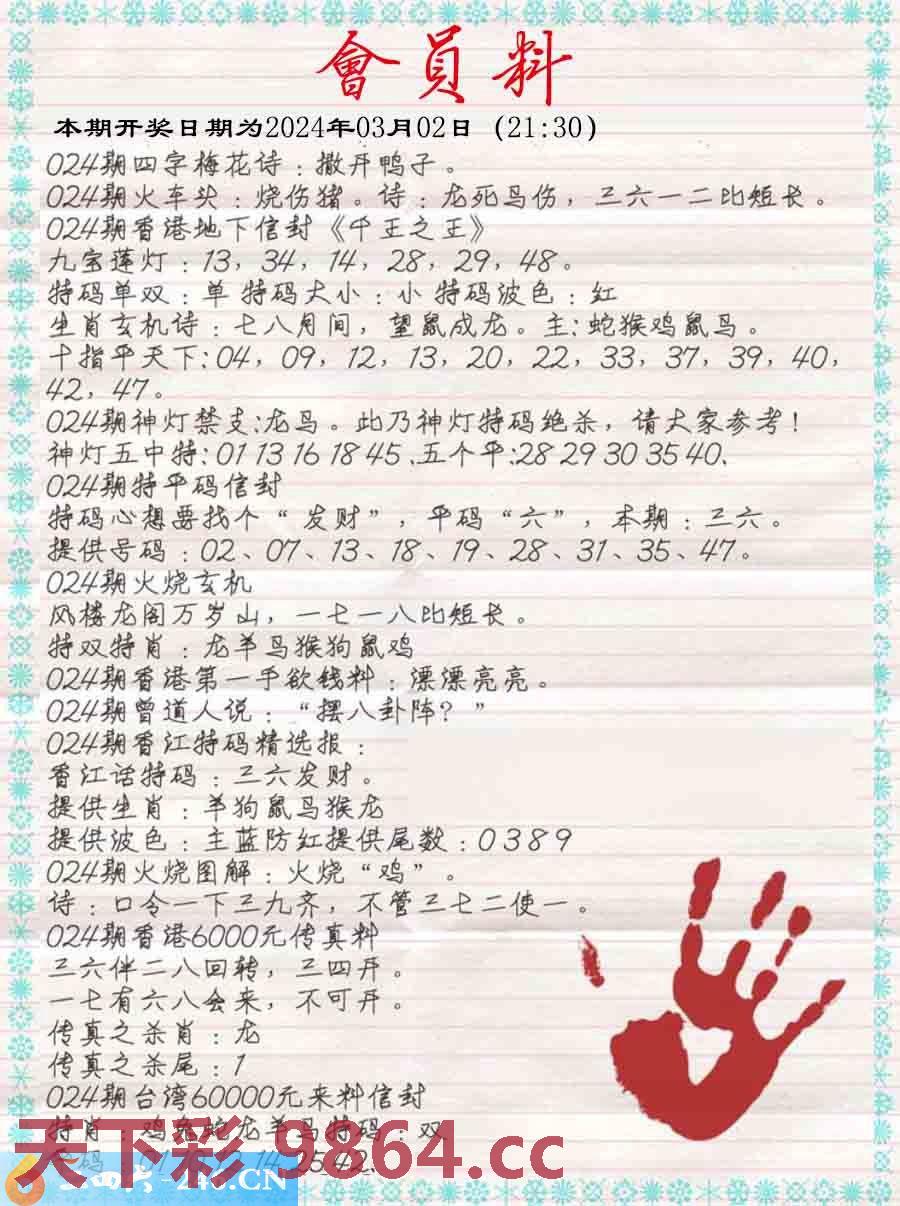 會員料
本期开奖日期为2024年03月02日（21:30）
024期四字梅花诗：撒开鸭子。
024期火车头：烧伤猪。诗：龙死鸟伤，三六一二比短长。
024期香港地下信封《千王之王》
九宝莲灯：13，34，14，28，29，48。
特码单双：单 特码大小：小 特码波色：红
生肖玄机诗：七八月间，望鼠成龙。主:蛇猴鸡鼠马。
十指平天下:04，09，12，13，20，22，33，37，39，40，
42，47。
024期神灯禁支:龙马。此乃神灯特码绝杀，请大家参考！
神灯五中特:01 13 16 18 45 .五个平:28 29 30 35 40、
024期特平码信封
特码心想要找个“发财”，平码“六”，本期：三六。
提供号码：02、07、13、18、19、28、31、35、47。
024期火烧玄机
风楼龙阁万岁山，一七一八比短长。
特双特肖：龙羊马猴狗鼠鸡
024期香港第一手欲钱料：漂漂亮亮。
024期曾道人说：“摆八卦阵？”
024期香江特码精选报：
香江话特码：三六发财。
提供生肖：羊狗鼠马猴龙
提供波色：主蓝防红提供尾数：0 3 8 9
024期火烧图解：火烧“鸡”。
诗：口令一下三九齐，不管三七二使一。
024期香港6000元传真料
三六伴二八回转，三四开。
一七有六八会来，不可开。
传真之杀肖：龙
传真之杀尾：1
024期台湾60000元来料信封
特肖：鸡兔蛇龙羊马特码：双
天下彩 9864.cc
246.CN